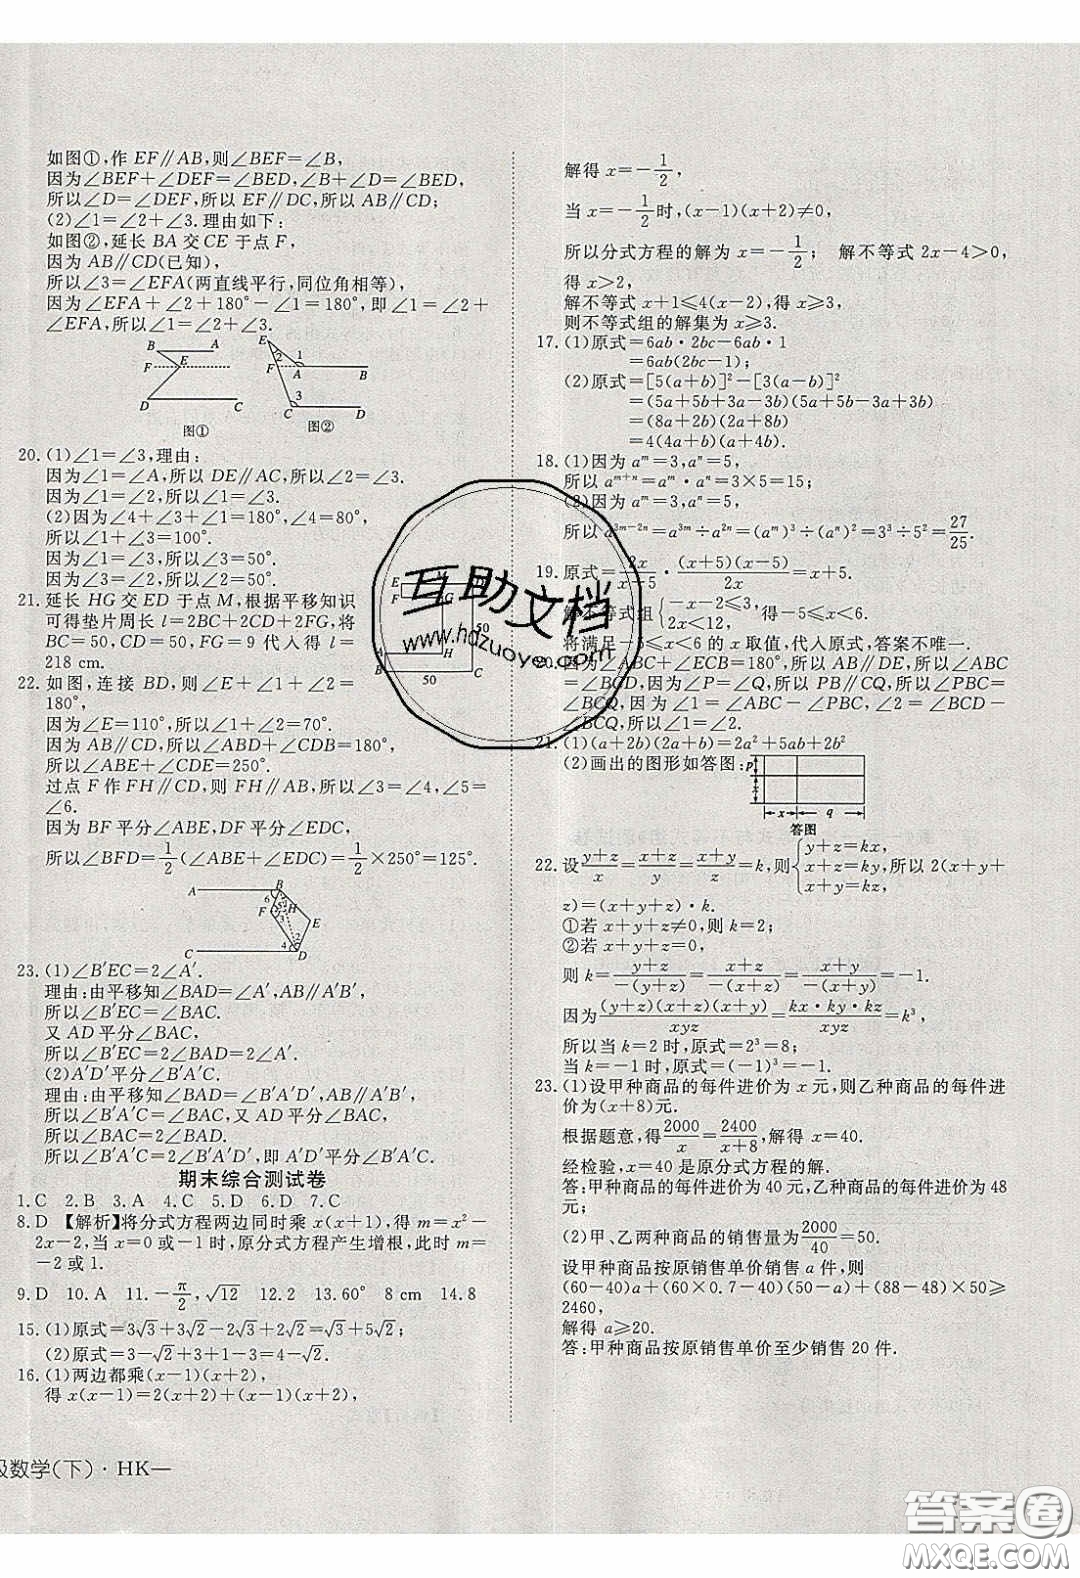 如图①,作 EF∥AB,则∠BEF=∠B,
因为∠BEF+∠DEF=∠BED,∠B+∠D=∠BED,
所以∠D=∠DEF,所以 EF∥DC,所以 AB∥CD;
(2)∠1=∠2+∠3.理由如下:
如图②,延长 BA 交 CE 于点 F,
因为 AB∥CD(已知),
所以∠3=∠EFA(两直线平行,同位角相等),
因为∠EFA+∠2+180°-∠1=180°,即∠1=∠2+
∠EFA,所以∠1=∠2+∠3.
B A F E D C
图①
E 2 1 F A B 3 C D
图②
20.(1)∠1=∠3,理由:
因为∠1=∠A,所以 DE∥AC,所以∠2=∠3.
因为∠1=∠2,所以∠1=∠3.
(2)因为∠4+∠3+∠1=180°,∠4=80°,
所以∠1+∠3=100°.
因为∠1=∠3,所以∠3=50°.
因为∠3=∠2,所以∠2=50°.
21.延长 HG 交 ED 于点 M,根据平移知识
可得垫片周长 l=2BC+2CD+2FG,将
BC=50,CD=50,FG=9 代入得 l=
218 cm.
E M D F G 50 A H B C 50
22.如图,连接 BD,则∠E+∠1+∠2=
180°,
因为∠E=110°,所以∠1+∠2=70°.
因为 AB∥CD,所以∠ABD+∠CDB=180°,
所以∠ABE+∠CDE=250°.
过点 F 作 FH∥CD,则 FH∥AB,所以∠3=∠4,∠5=
∠6.
因为 BF 平分∠ABE,DF 平分∠EDC,
所以∠BFD=1/2(∠ABE+∠EDC)=1/2×250°=125°.
A B F H E C D
23.(1)∠B′EC=2∠A′.
理由:由平移知∠BAD=∠A′,AB∥A′B′,
所以∠B′EC=∠BAC.
又 AD 平分∠BAC,
所以∠B′EC=2∠BAD=2∠A′.
(2)A′D′平分∠B′A′C.
理由:由平移知∠BAD=∠B′A′D′,AB∥A′B′,
所以∠B′A′C=∠BAC,又 AD 平分∠BAC,
所以∠BAC=2∠BAD.
所以∠B′A′C=2∠B′A′D′,即 A′D′平分∠B′A′C.
期末综合测试卷
1.C 2.B 3.A 4.C 5.D 6.D 7.C
8.D 【解析】将分式方程两边同时乘 x(x+1),得 m=x²-
2x-2,当 x=0 或-1 时,原分式方程产生增根,此时 m=
-2 或 1.
9.D 10.A 11.-π/2,√12 12.2 13.60° 8 cm 14.8
15.(1)原式=3√3+3√2-2√3+2√2=√3+5√2;
(2)原式=3-√2+3+1-3=4-√2.
16.(1)两边都乘(x-1)(x+2),
得 x(x-1)=2(x+2)+(x-1)(x+2),
解得 x=-1/2,
当 x=-1/2时,(x-1)(x+2)≠0,
所以分式方程的解为 x=-1/2; 解不等式 2x-4>0,
得 x>2,
解不等式 x+1≤4(x-2),得 x≥3,
则不等式组的解集为 x≥3.
17.(1)原式=6ab·2bc-6ab·1
=6ab(2bc-1);
(2)原式=[5(a+b)]²-[3(a-b)]²
=(5a+5b+3a-3b)(5a+5b-3a+3b)
=(8a+2b)(2a+8b)
=4(4a+b)(a+4b).
18.(1)因为 aᵐ=3,aⁿ=5,
所以 aᵐ⁺ⁿ=aᵐ·aⁿ=3×5=15;
(2)因为 aᵐ=3,aⁿ=5,
所以 a³ᵐ⁻²ⁿ=a³ᵐ÷a²ⁿ=(aᵐ)³÷(aⁿ)²=3³÷5²=27/25.
19.原式=2x/(x-5)·(x+5)(x-5)/2x=x+5.
解不等式组{-x-2≤3, 2x<12, 得-5≤x<6.
将满足-5≤x<6 的 x 取值,代入原式,答案不唯一.
20.因为∠ABC+∠ECB=180°,所以 AB∥DE,所以∠ABC
=∠BCD,因为∠P=∠Q,所以 PB∥CQ,所以∠PBC=
∠BCQ,因为∠1=∠ABC-∠PBC,∠2=∠BCD-
∠BCQ,所以∠1=∠2.
21.(1)(a+2b)(2a+b)=2a²+5ab+2b²
(2)画出的图形如答图:
p x x q
答图
22.设(y+z)/x=(x+z)/y=(x+y)/z=k,则{y+z=kx, x+z=ky, x+y=kz, 所以 2(x+y+
z)=(x+y+z)·k.
①若 x+y+z≠0,则 k=2;
②若 x+y+z=0,
则 k=(y+z)/-(y+z)=(x+z)/-(x+z)=(x+y)/-(x+y)=-1.
因为(y+z)(x+z)(x+y)/xyz=kx·ky·kz/xyz=k³,
所以当 k=2 时,原式=2³=8;
当 k=-1 时,原式=(-1)³=-1.
23.(1)设甲种商品的每件进价为 x 元,则乙种商品的每件进
价为(x+8)元.
根据题意,得2000/x=2400/(x+8),解得 x=40.
经检验,x=40 是原分式方程的解.
答:甲种商品的每件进价为 40 元,乙种商品的每件进价为 48
元;
(2)甲、乙两种商品的销售量为2000/40=50.
设甲种商品按原销售单价销售 a 件,则
(60-40)a+(60×0.7-40)(50-a)+(88-48)×50≥
2460,
解得 a≥20.
答:甲种商品按原销售单价至少销售 20 件.
级数学(下)·HK—
互助文档
www.hdzuoye.com
答案圈
MXQE.COM